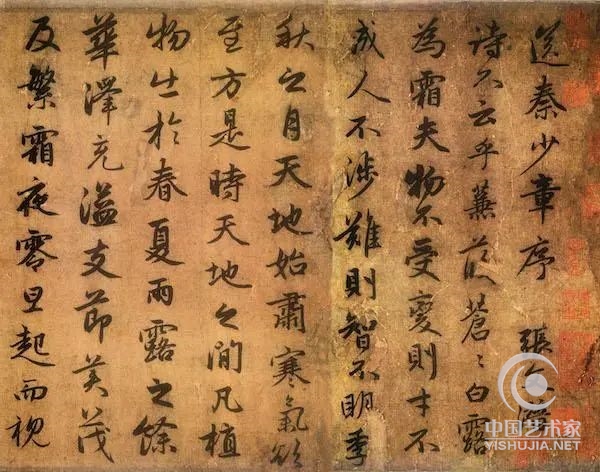 送秦少章序 張文潛
詩不云乎蒹葭蒼〻白露
為霜夫物不受變則才不
成人不涉難則智不明季
秋之月天地始肅寒氣欲
至方是時天地之間凡植
物出於春夏雨露之餘
華澤充溢支節美茂
及繁霜夜零旦起而視
中国艺术家
YISHUJIA.NET